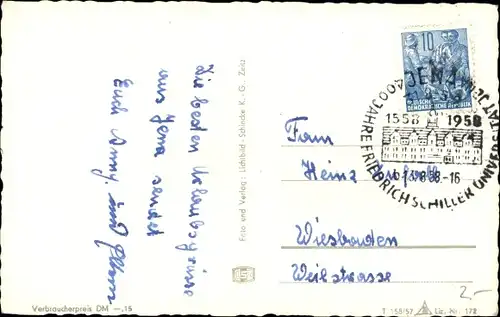 Die besten Urlaubsgrüsse
aus Jena sendet
Euch Anny und
Foto und Verlag: Lichtbild-Schincke K.-G., Zeitz
Verbraucherpreis DM —.15
10
DEUTSCHE
DEMOKRATISCHE REPUBLIK
JENA
1558 1958
400 JAHRE FRIEDRICH SCHILLER UNIVERSITÄT JENA
Fam
Heinz
Wiesbaden
Weilstrasse
2.-
T 158/57 Liz. Nr. 172